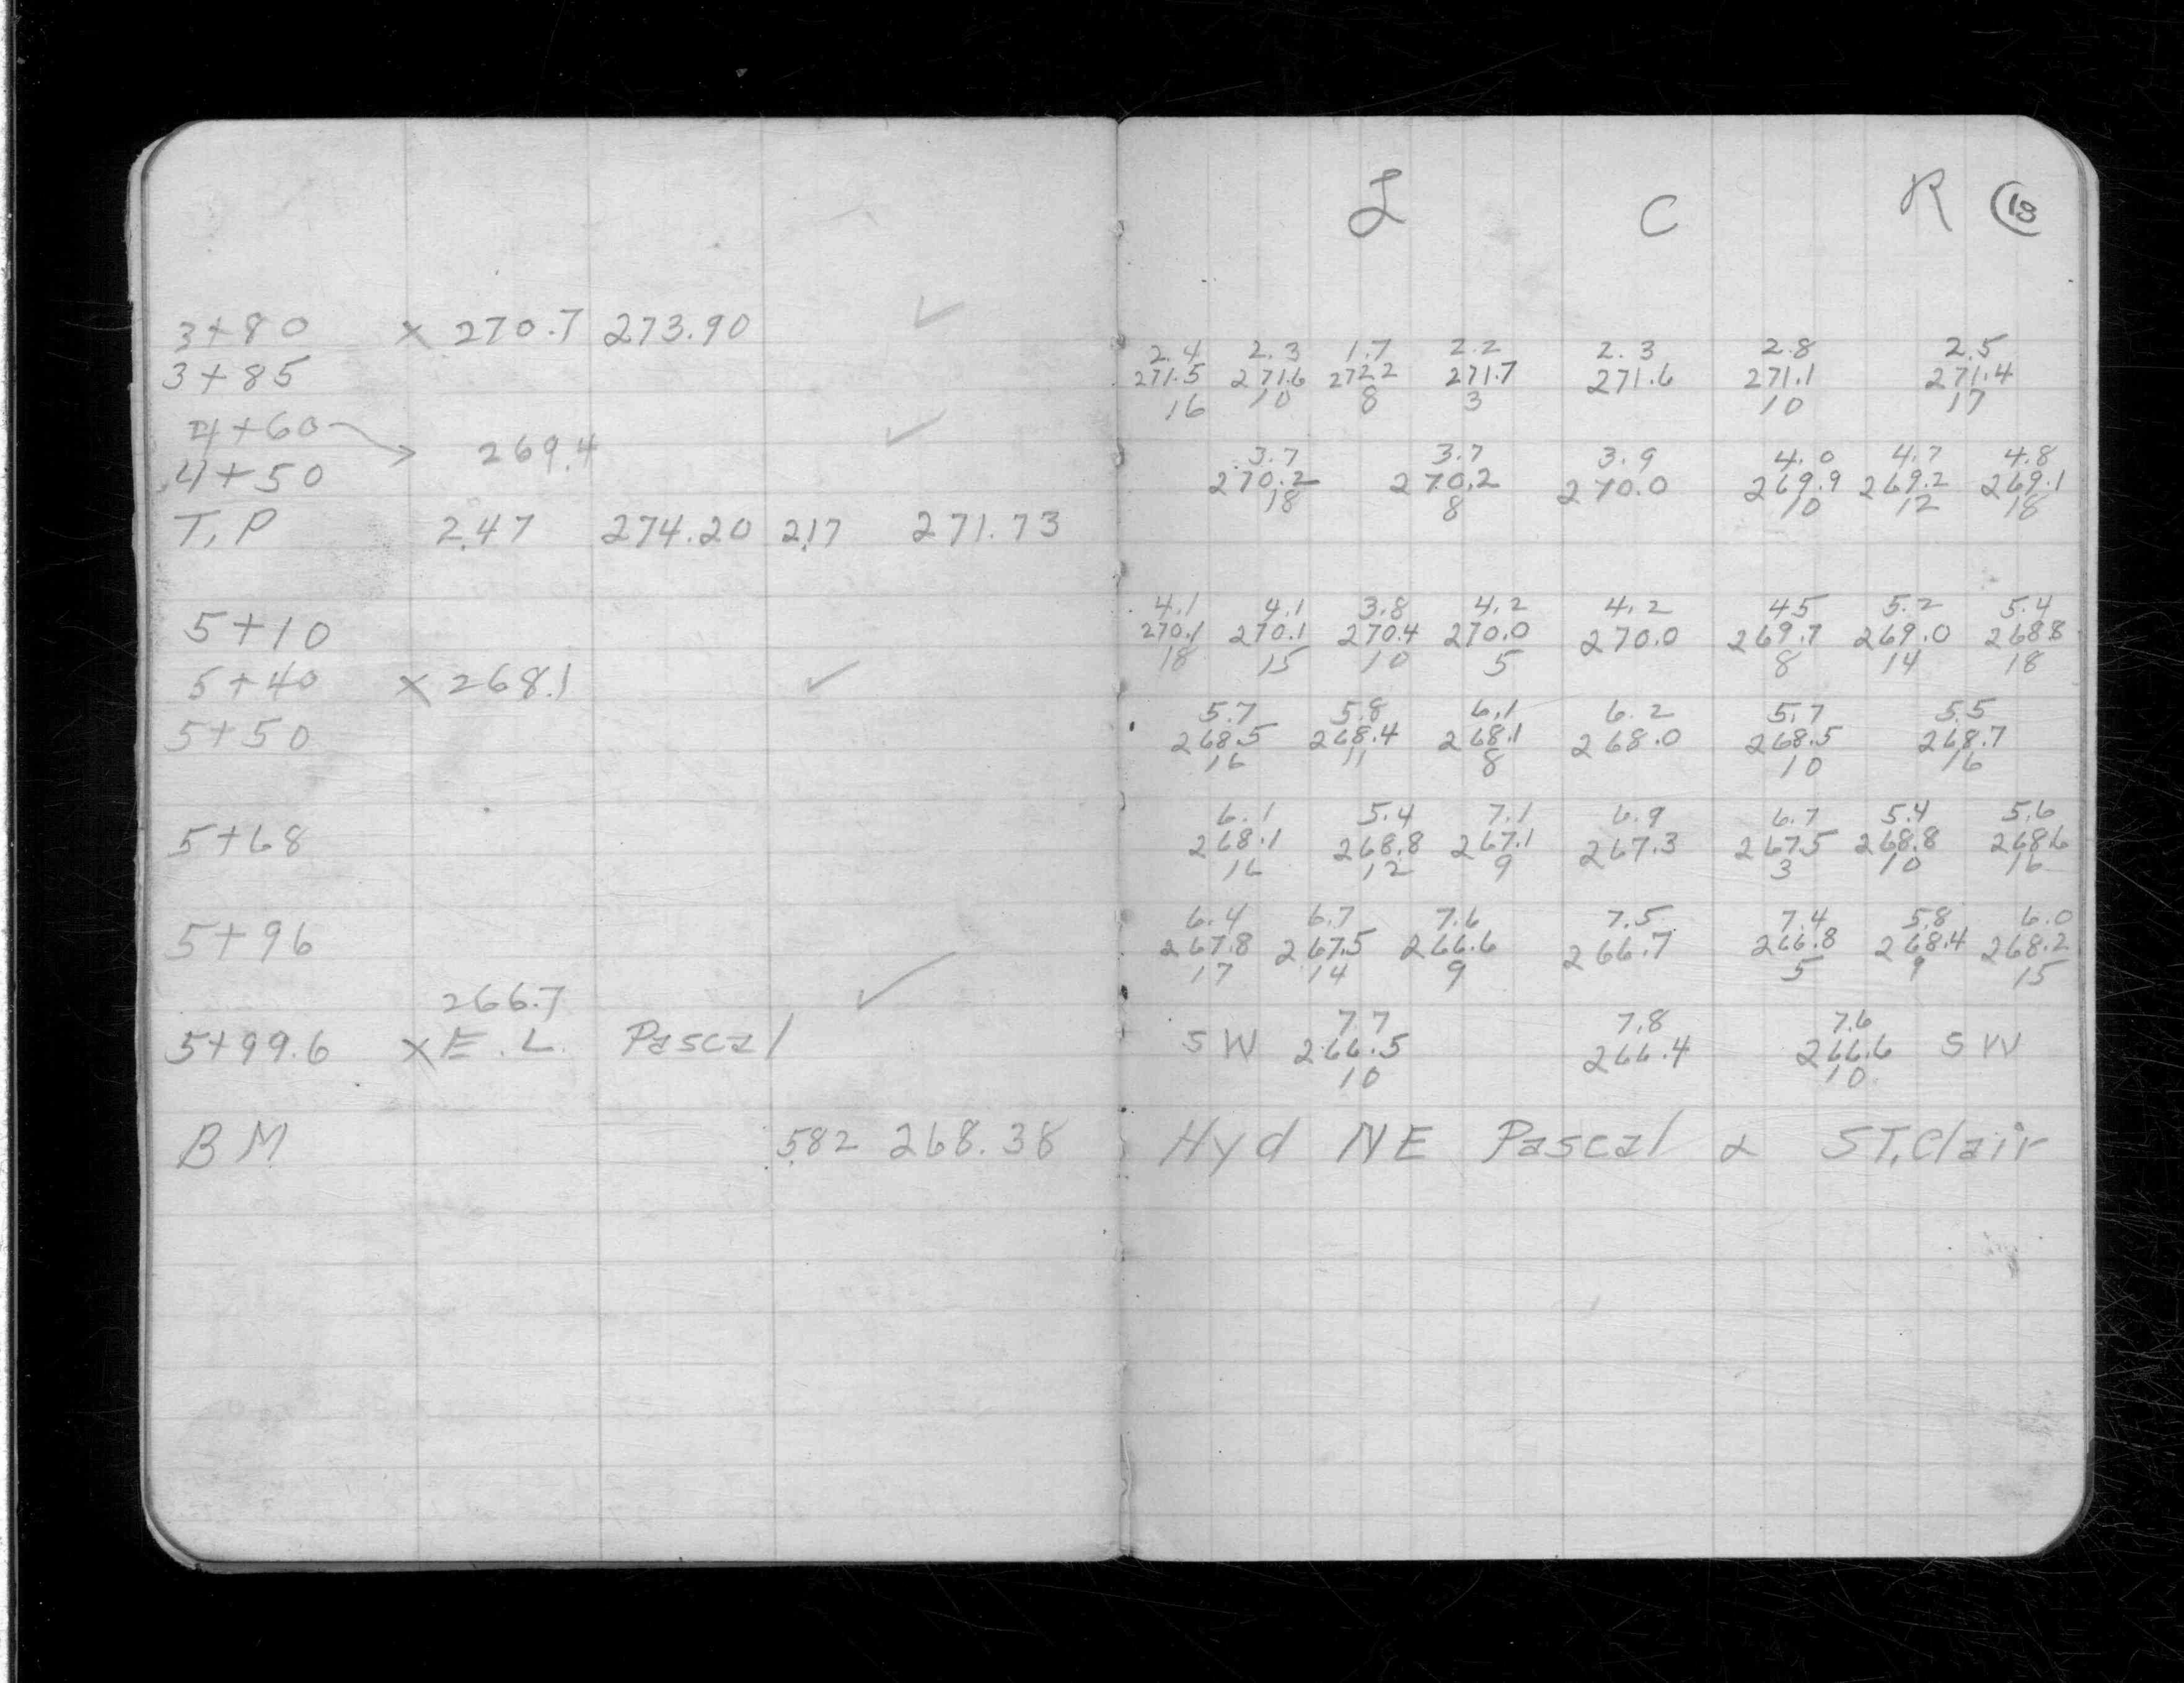 L C R 18
3+80 x 270.7 273.90 ✓
2.4 2.3 1.7 2.2 2.3 2.8 2.5
3+85 271.5 271.6 272.2 271.7 271.6 271.1 271.4
16 10 8 3 10 17
4+60 → 269.4 ✓
3.7 3.7 3.9 4.0 4.7 4.8
4+50 270.2 270.2 270.0 269.9 269.2 269.1
18 8 10 12 18
T.P 2.47 274.20 2.17 271.73
4.1 4.1 3.8 4.2 4.2 4.5 5.2 5.4
5+10 270.1 270.1 270.4 270.0 270.0 269.7 269.0 268.8
18 15 10 5 8 14 18
5+40 x 268.1 ✓
5.7 5.8 6.1 6.2 5.7 5.5
5+50 268.5 268.4 268.1 268.0 268.5 268.7
16 11 8 10 16
6.1 5.4 7.1 6.9 6.7 5.4 5.6
5+68 268.1 268.8 267.1 267.3 267.5 268.8 268.6
16 12 9 3 10 16
6.4 6.7 7.6 7.5 7.4 5.8 6.0
5+96 267.8 267.5 266.6 266.7 266.8 268.4 268.2
17 14 9 5 9 15
266.7 ✓
7.7 7.8 7.6
5+99.6 x E.L. Pascal SW 266.5 266.4 266.6 SW
10 10
BM 5.82 268.38 Hyd NE Pascal & ST. Clair